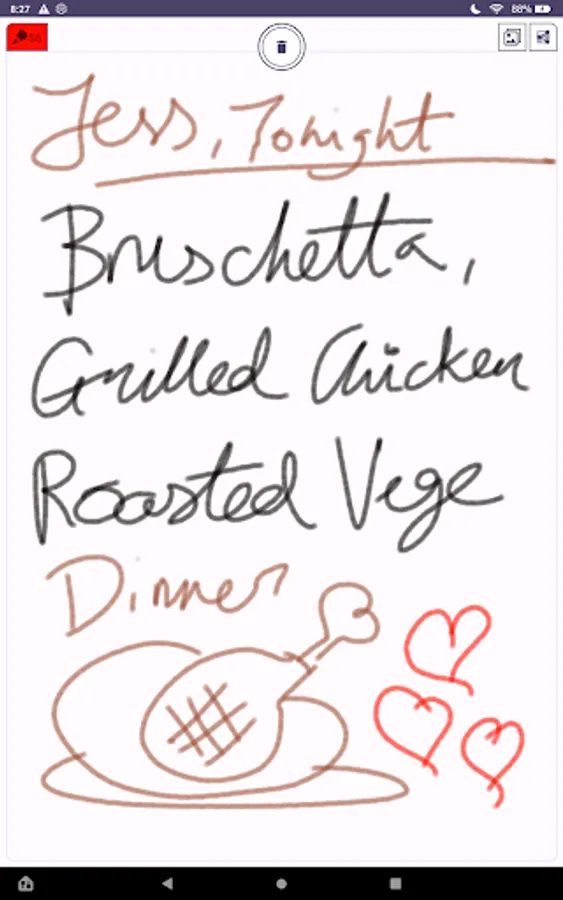 8:27
88%
50
Jess, Tonight
Bruschetta,
Grilled Chicken
Roasted Vege
Dinner